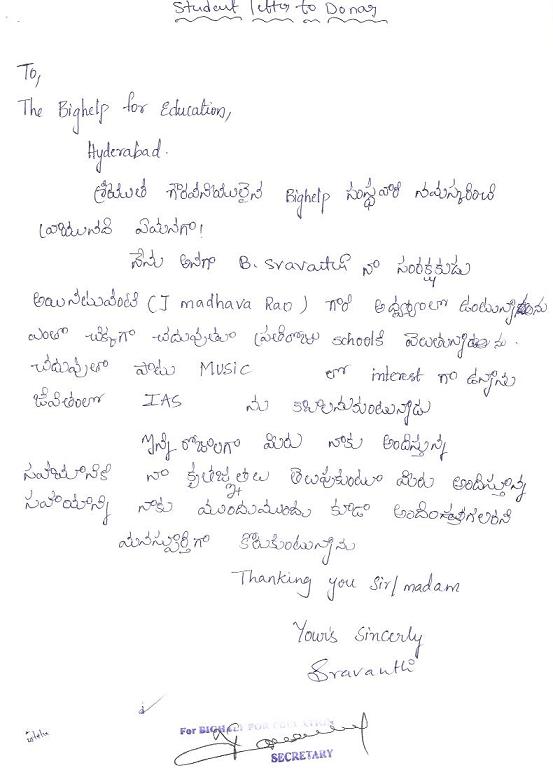 Student letter to Donar
To,
The Bighelp for Education,
Hyderabad.
శ్రీయుత గౌరవనియులైన Bighelp సంస్థవారికి నమస్కరించి
వ్రాయునది ఏమనగా!
నేను అనగా B. Sravanthi నా సంరక్షకుడు
అయినటువంటి (J madhava Rao) గారి ఉంటున్నాను
ఎంతో చక్కగా చదువుతూ ప్రతిరోజు schoolకి వెలుతున్నాను.
చదువుతో పాటు MUSIC లో interest గా ఉన్నాను
జీవితంలో IAS ను
ఇన్ని రోజులుగా మీరు నాకు అందిస్తున్న
సహాయానికి నా కృతజ్ఞతలు తెలుపుకుంటూ మీరు అందిస్తున్న
సహాయాన్ని నాకు ముందుముందు కూడా
మనస్పూర్తిగా కోరుకుంటున్నాను
Thanking you Sir/madam
Your's Sincerly
Sravanthi
For BIGHELP FOR EDUCATION
SECRETARY